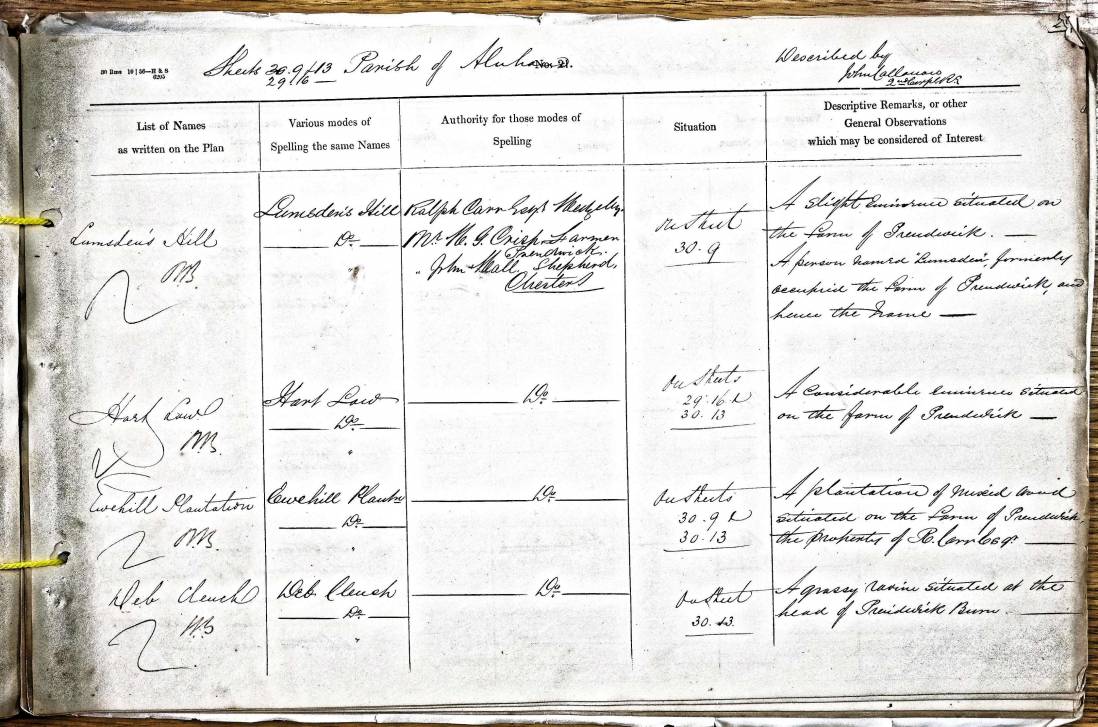 Sheets 30.9 & 13 Parish of Alnham No. 21.
29.16
Described by
John Callanan
2nd Corpl R.E.
List of Names
as written on the Plan
Various modes of
Spelling the same Names
Authority for those modes of
Spelling
Situation
Descriptive Remarks, or other
General Observations
which may be considered of Interest
Lumsden's Hill
Lumsden's Hill
Do.
"
Ralph Carr Esqr Hedgeley
Mr. M. G. Crisp Farmer
Prendwick.
" John Hall, Shepherd,
Chesters
On Sheet
30.9
A slight eminence situated on
the Farm of Prendwick. —
A person named 'Lumsden', formerly
occupied the Farm of Prendwick, and
hence the Name —
Hart Law
Hart Law
Do.
"
Do.
On Sheets
29.16 &
30.13
A Considerable eminence situated
on the farm of Prendwick —
Ewehill Plantation
Ewehill Plantn
Do.
"
Do.
On Sheets
30.9 &
30.13
A plantation of mixed wood
situated on the Farm of Prendwick,
the property of R. Carr Esqr. —
Deb Cleuch
Deb Cleuch
Do.
"
Do.
On Sheet
30.13.
A grassy ravine situated at the
head of Prendwick Burn. —